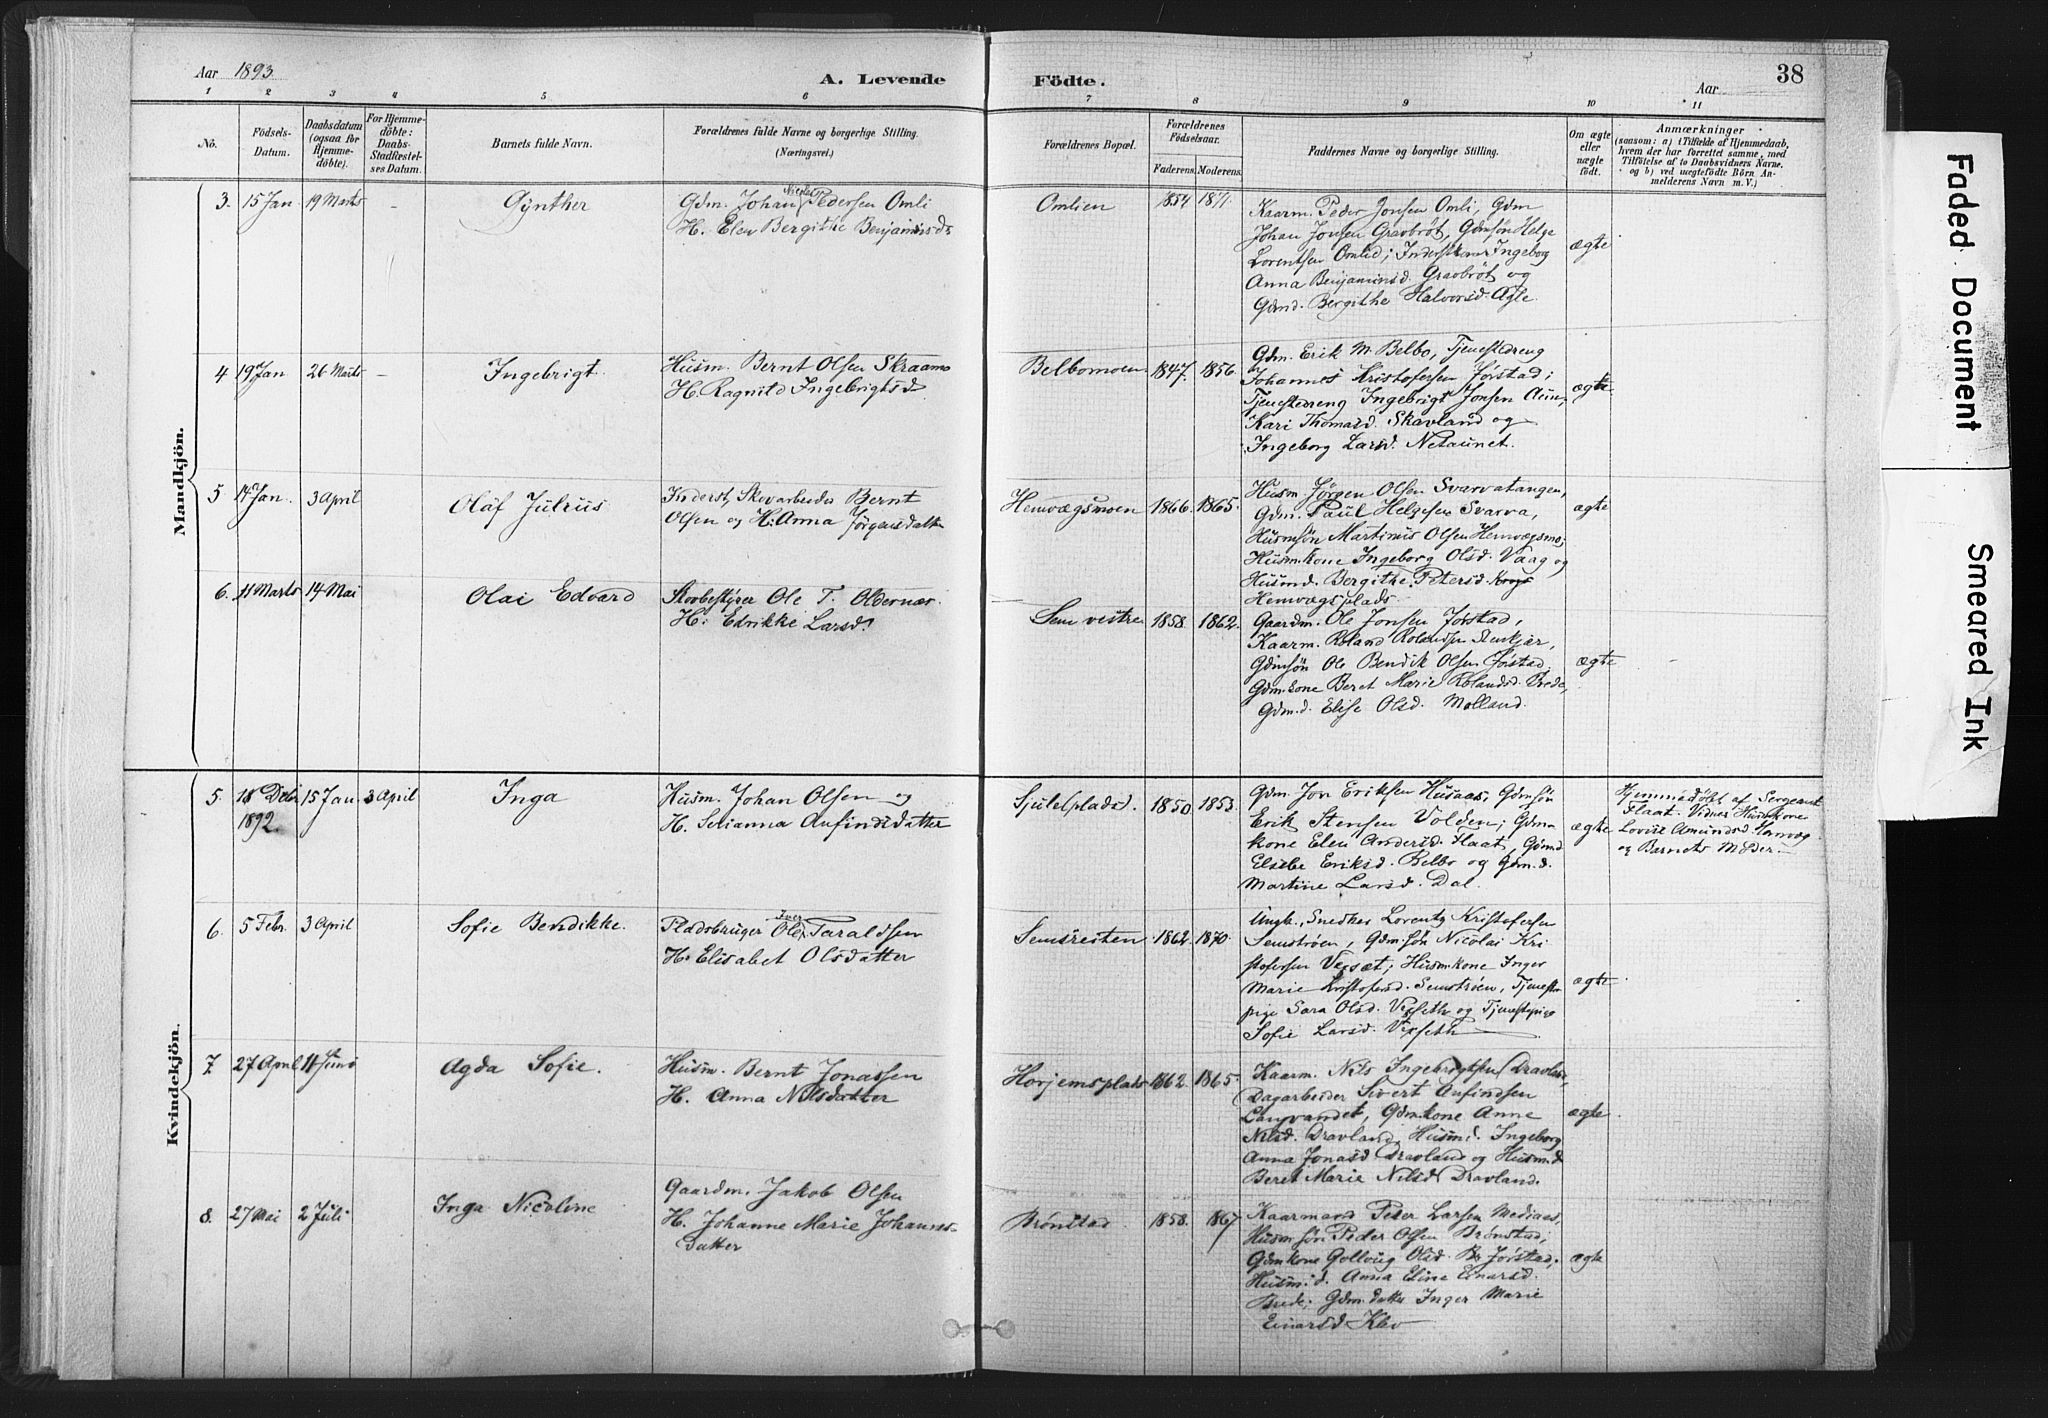 Aar 1893.
A. Levende
Födte.
Aar
38
1 2 3 4 5 6 7 8 9 10 11
No.
Födsels-
Datum.
Daabsdatum
(ogsaa for
Hjemme-
döbte).
For Hjemme-
döbte:
Daabs-
Stadfæstel-
ses Datum.
Barnets fulde Navn.
Forældrenes fulde Navne og borgerlige Stilling.
(Næringsvei.)
Forældrenes Bopæl.
Forældrenes
Födselsaar.
Faderens. Moderens.
Faddernes Navne og borgerlige Stilling.
Om ægte
eller
uægte
födt.
Anmærkninger
(saasom: a) i Tilfælde af Hjemmedaab,
hvem der har forrettet samme, med
Tilföielse af to Daabsvidners Navne.
og b) ved uægtefödte Börn An-
melderens Navn m. V.)
Mandkjön.
3. 15 Jan 19 Marts - Gynther
Gdm. Johan Nicolai Pedersen Omli
H. Elen Bergithe Benjaminsd.
Omlien 1854 1871.
Kaarm. Peder Jonsen Omli, Gdm
Johan Jonsen Gravbröt, Gdmsön Helge
Lorentsen Omlid; Inderstkone Ingeborg
Anna Benjaminsd. Gravbröt og
Gdmd. Bergithe Halvorsd. Agle.
ægte
4 19 Jan 26 Marts - Ingebrigt.
Husm. Bernt Olsen Skraamo
H. Ragnild Ingebrigtsd.
Belbomoen 1847. 1856.
Gdm. Erik M. Belbo, Tjenestedreng
Johannes Kristofersen Jörstad;
Tjenestedreng Ingebrigt Jonsen Aun,
Kari Thomasd. Skavland og
Ingeborg Larsd. Netaunet.
ægte
5 14 Jan. 3 April Olaf Julius
Inderst, Skovarbeider Bernt
Olsen og H. Anna Jörgensdatter
Hemvægsmoen 1866. 1865.
Husm. Jörgen Olsen Svarvatangen,
Gdm. Paul Helgesen Svarva,
Husmsön Martinus Olsen Hemvægsmo;
Husm.kone Ingeborg Olsd. Vaag og
Husmd. Bergithe Petersd.
Hemvægsplads.
ægte
6. 11 Marts 14 Mai Olai Edvard
Skovbestyrer Ole T. Oldernæs.
H: Edrikke Larsd.
Sem vestre 1858. 1862.
Gaardm. Ole Jonsen Jörstad,
Kaarm. Roland Rolandsen
Gdmsön Ole Bendik Olsen Jörstad,
Gdm.kone Beret Marie Rolandsd. Brede,
Gdm.d. Elise Olsd. Molland.
ægte
Kvindekjön.
5. 18 Debr 1892. 15 Jan. 3 April Inga
Husm. Johan Olsen og
H. Serianna Anfindsdatter
Sjulsplads. 1850. 1853.
Gdm. Jon Eriksen Husaas, Gdmsön
Erik Stensen Volden; Gdm-
kone Elen Andersd. Flaat, Gdmd
Elsebe Eriksd. Belbo og Gdm.d.
Martine Larsd. Dal.
ægte
Hjemmedöbt af Sergeant
Flaat. Vidner Huskone
Lovise Amundsd.
og Barnets Moder.
6. 5 Febr. 3 April Sofie Bendikke.
Pladsbruger Ole Iver Taraldsen
H. Elisabet Olsdatter
Semsresten 1862. 1870.
Ungk., Snedker Lorents Kristofersen
Semströen, Gdm.sön Nicolai Kri-
stofersen Vexset; Husm.kone Inger
Marie Kristofersd. Semströen, Tjeneste-
pige Sara Olsd. Vexseth og Tjenestepige
Sofie Larsd. Vexseth
ægte
7 27 April 11 Juni Agda Sofie.
Husm. Bernt Jonassen
H. Anna Nilsdatter
Horjemsplads 1862. 1865.
Kaarm. Nils Ingebrigtsen Dravland,
Dagarbeider Sivert Anfindsen
Langvandet, Gdm.kone Anne
Nilsd. Dravland, Husm.d. Ingeborg
Anna Jonasd Dravland og Husm.d
Beret Marie Nilsd Dravland.
ægte
8. 27 Mai 2 Juli Inga Nicoline
Gaardm. Jakob Olsen
H. Johanne Marie Johanns-
datter
Brönstad 1858. 1867
Kaarmand Peter Larsen Mediaas,
Husm.sön Peder Olsen Brönstad;
Gdmkone Gollaug Olsd. Jörstad;
Husm.d. Anna Eline Einarsd.
Brede; Gdm.datter Inger Marie
Einarsd Klev
ægte
Faded Document
Smeared Ink